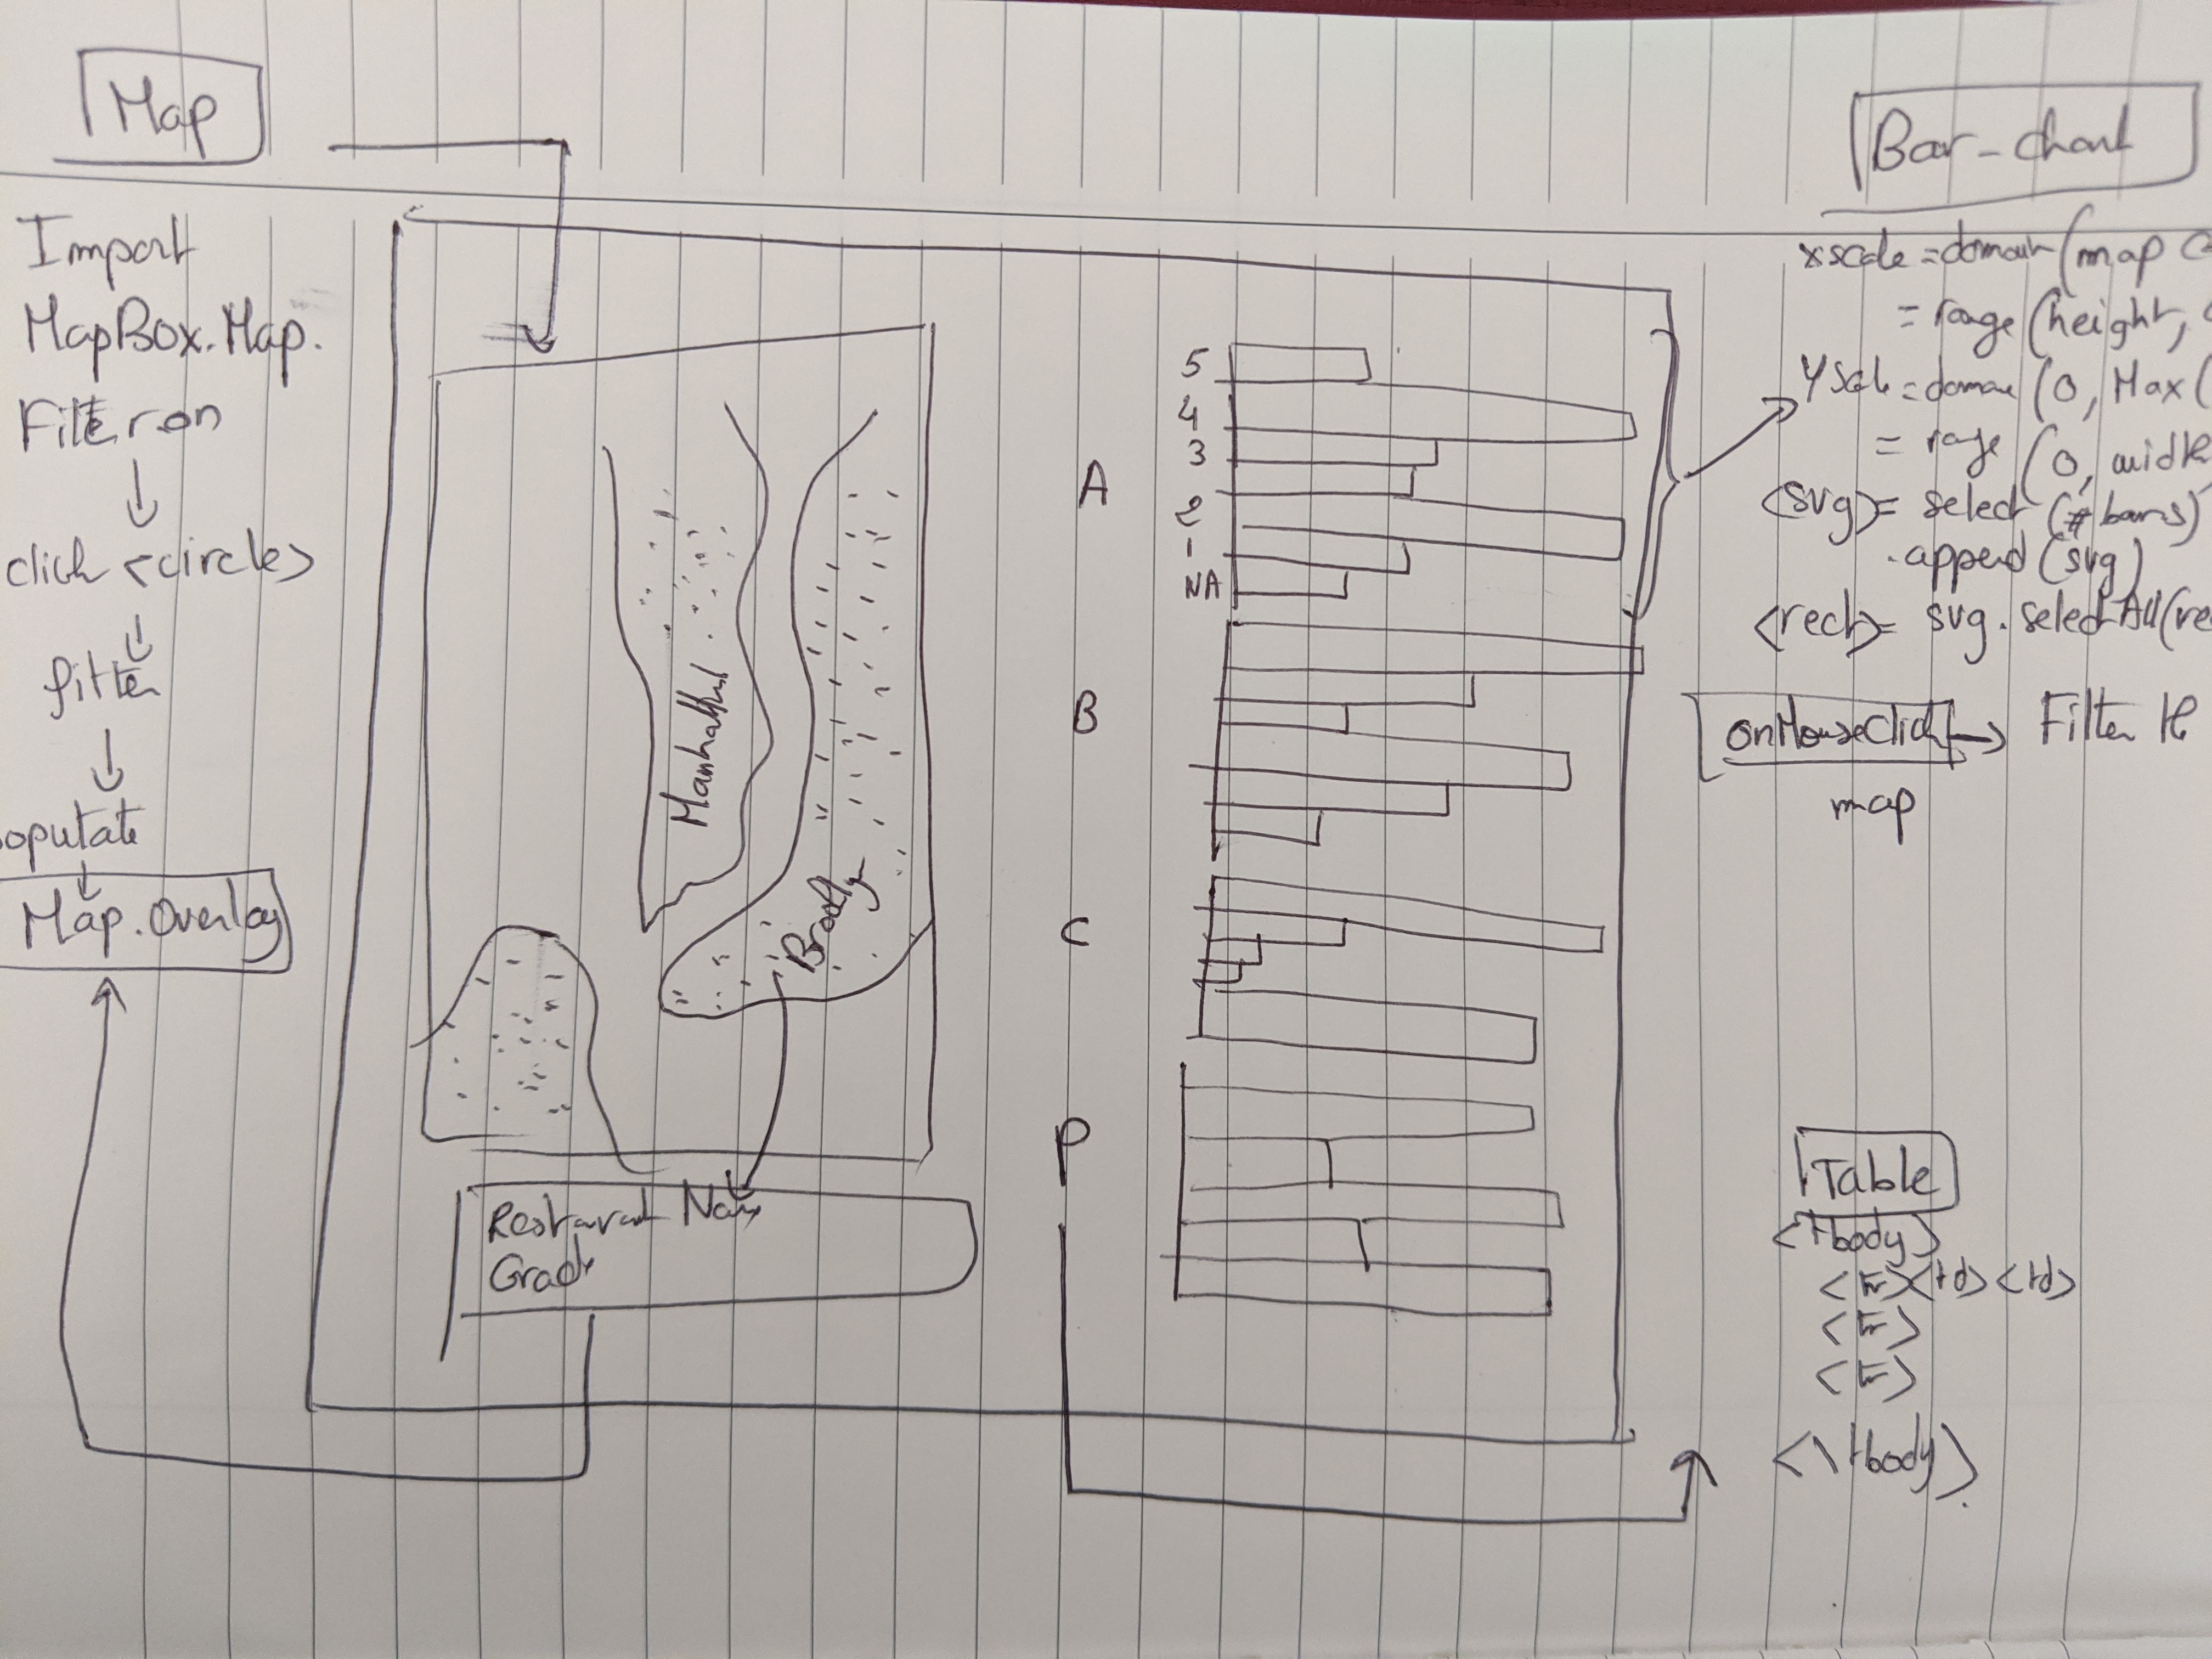 Map
Import
MapBox.Map.
Filter on
click <circles>
filter
populate
Map.Overlay
Manhattan
Brooklyn
Restaurant Name
Grade
A
5
4
3
2
1
NA
B
C
P
Bar-chart
xscale = domain (map
= range (height,
Yscale = domain (0, Max (
= range (0, width
<svg> = select (# bars)
.append (svg)
<rect> = svg.selectAll(rec
onMouseClick → Filter the
map
Table
<tbody>
<tr><td><td>
<tr>
<tr>
<\tbody>